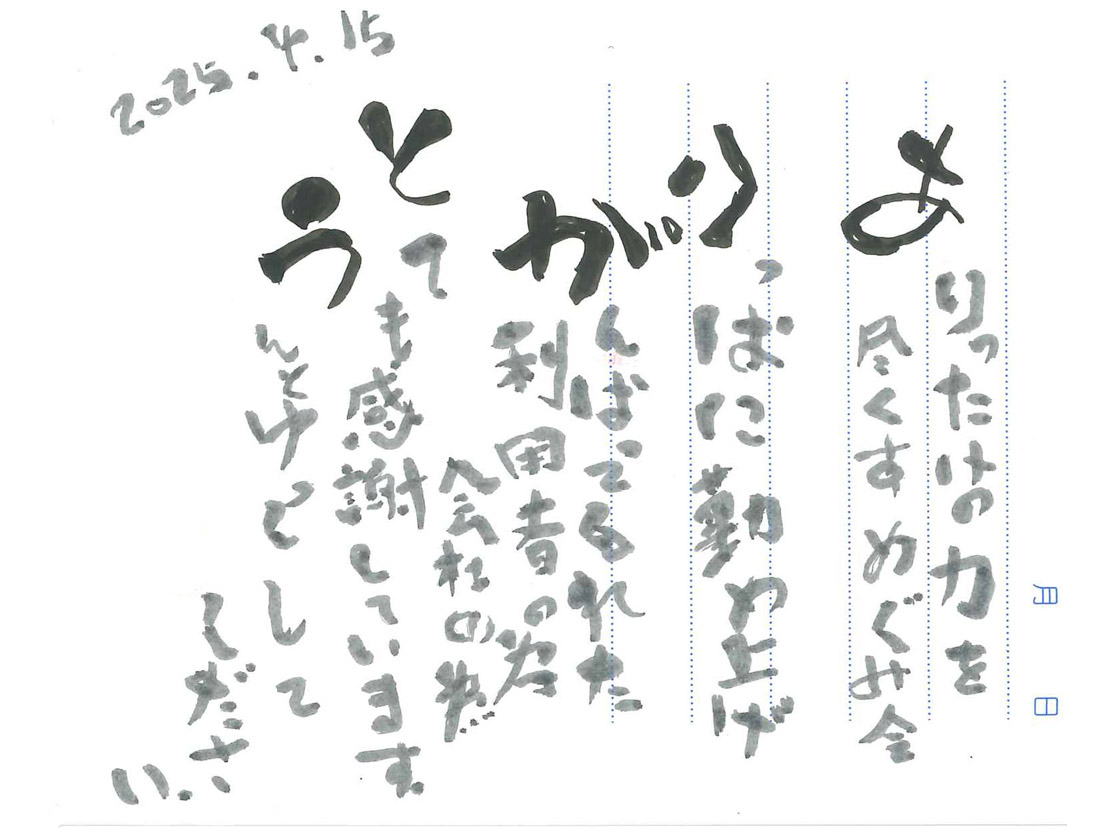 月 日
ありったけの力を
尽くすめぐみ会
りっぱに勤め上げ
がんばってこられた
利用者の為
会社の為…
とても感謝しています。
うんとゆっくりして
ください。
2025.4.15